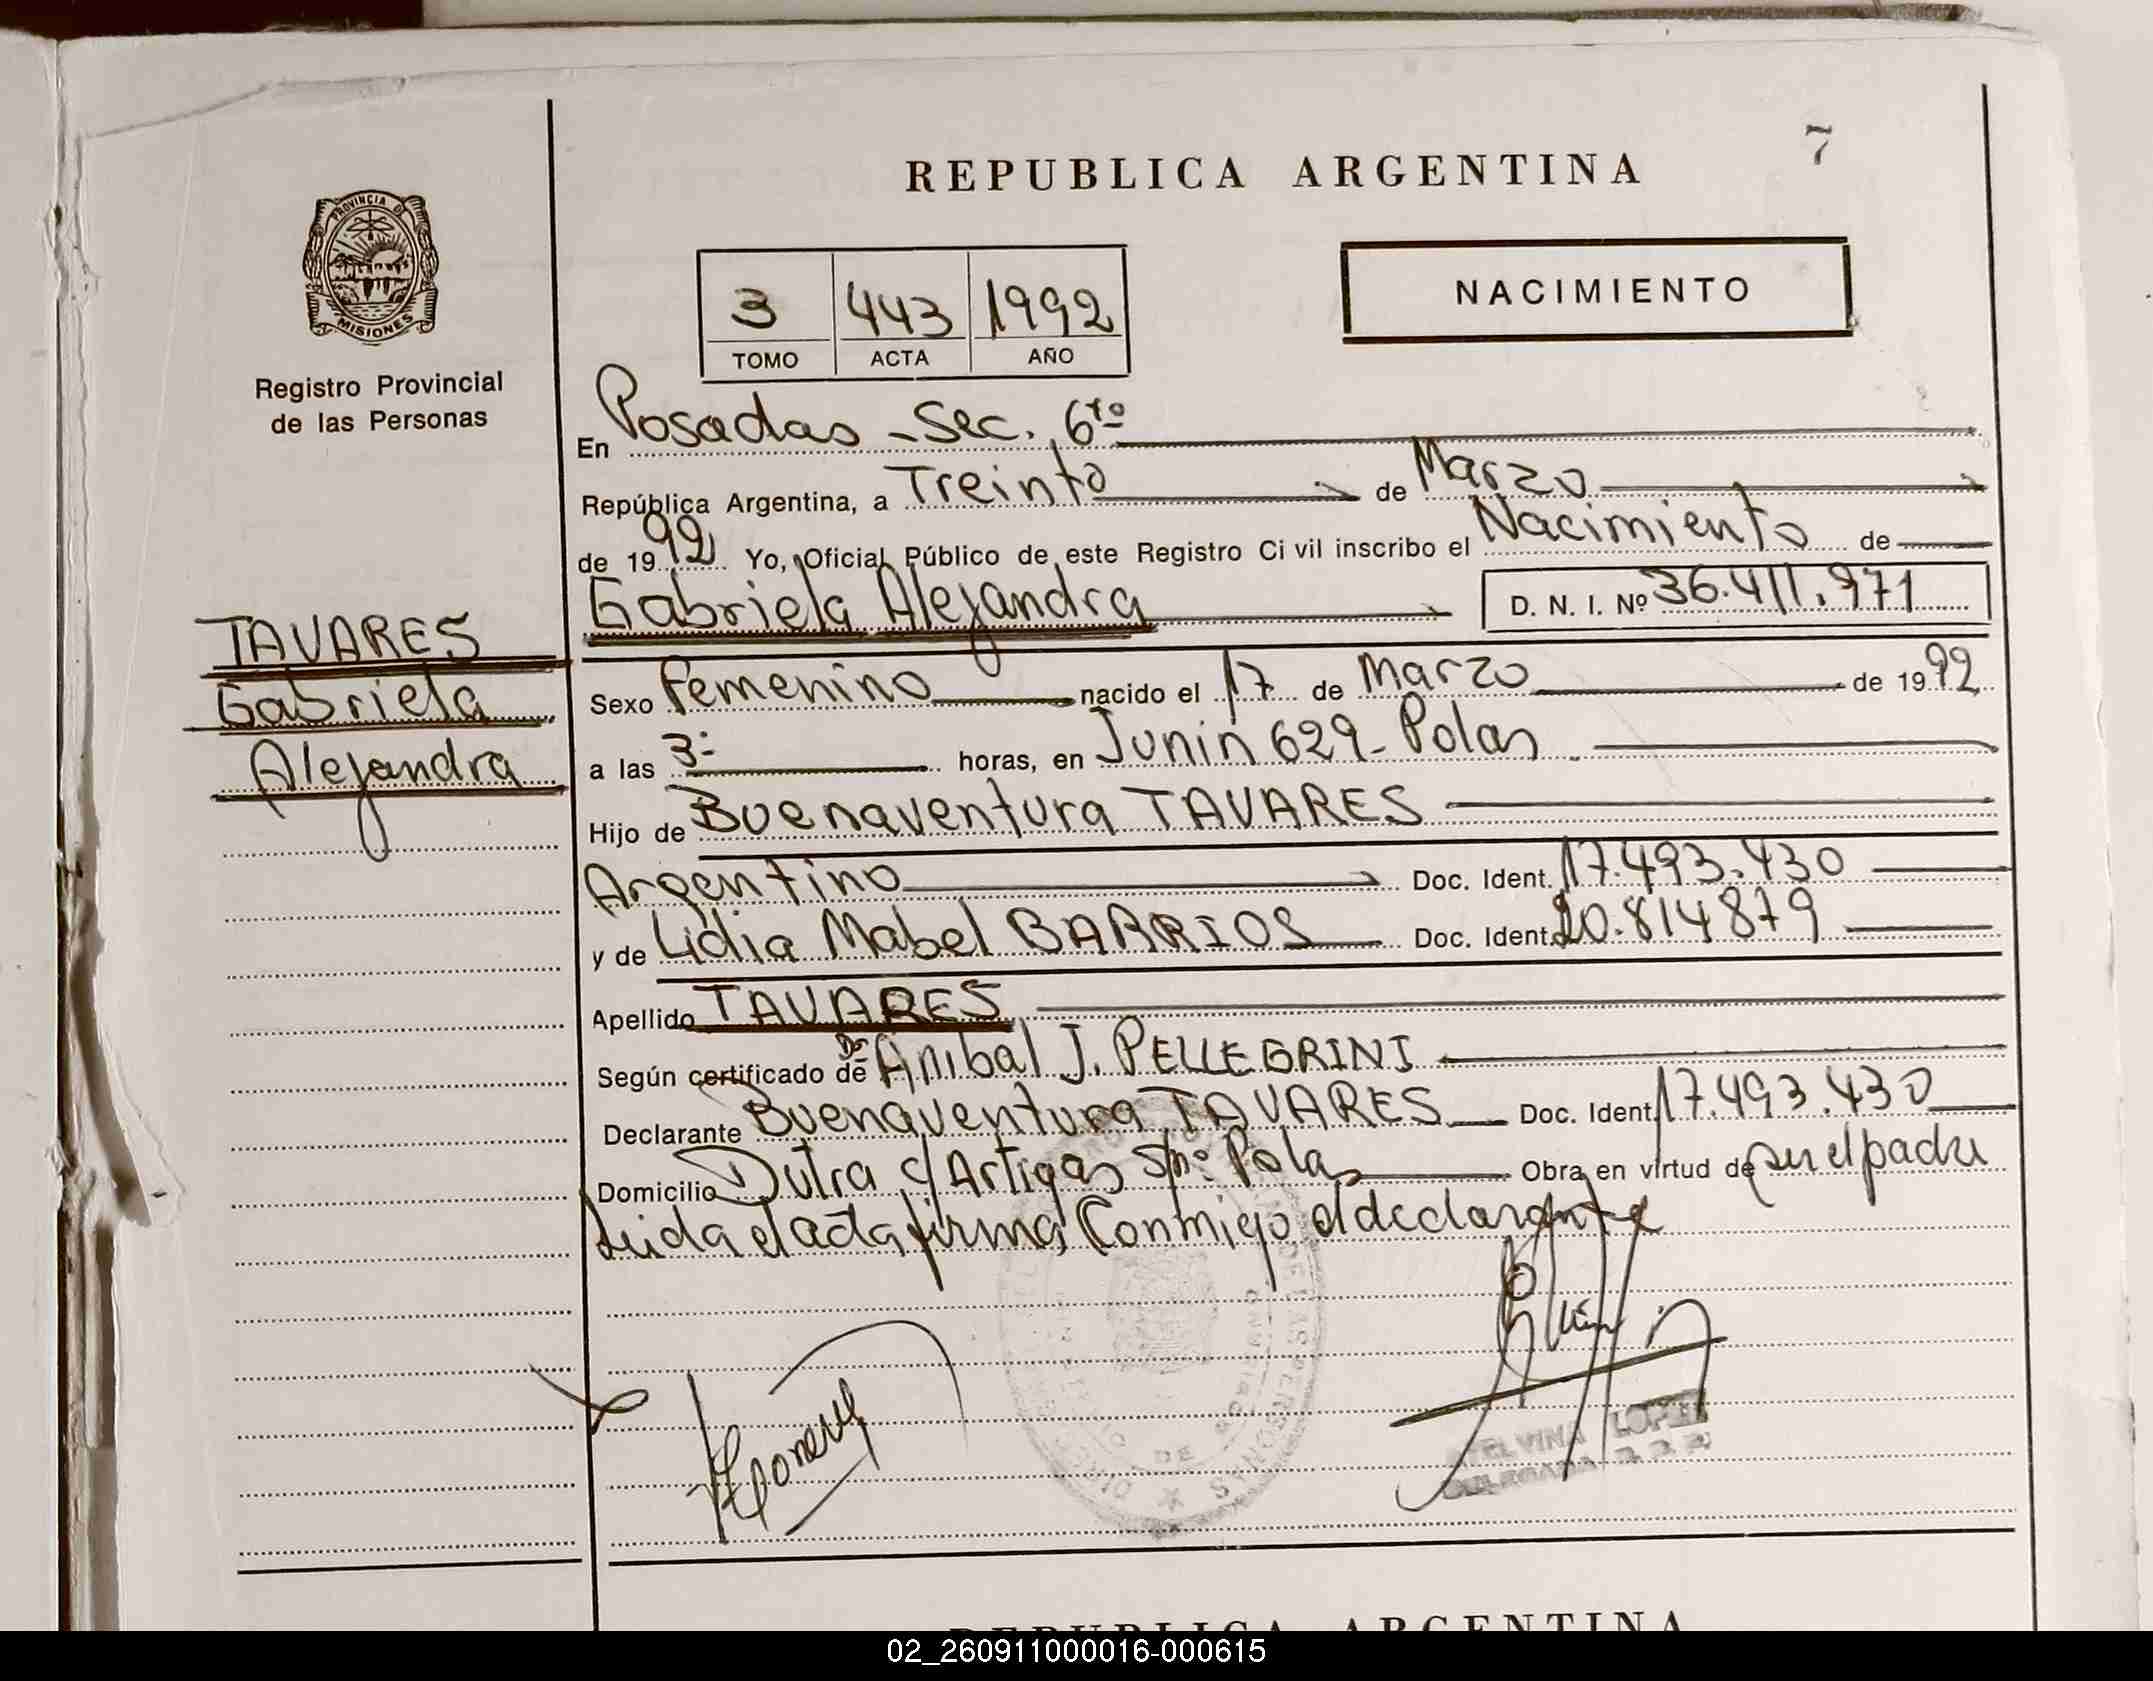 7
REPUBLICA ARGENTINA
PROVINCIA DE
MISIONES
Registro Provincial
de las Personas
NACIMIENTO
3 443 1992
TOMO ACTA AÑO
En Posadas - Sec. 6ta
República Argentina, a Treinta de Marzo
de 1992 Yo, Oficial Público de este Registro Civil inscribo el Nacimiento de
Gabriela Alejandra D. N. I. Nº 36.411.971
TAVARES
Gabriela
Alejandra
Sexo femenino nacido el 17 de Marzo de 1992
a las 3- horas, en Junin 629- Pdas
Hijo de Buenaventura TAVARES
Argentino Doc. Ident. 17.493.430
y de Lidia Mabel BARRIOS Doc. Ident. 20.814879
Apellido TAVARES
Según certificado de Dr Anibal J. PELLEGRINI
Declarante Buenaventura TAVARES Doc. Ident. 17.493.430
Domicilio Dutra c/ Artigas S/nº Pdas Obra en virtud de ser el padre
Leida el acta firma conmigo el declarante
ETELVINA LOPEZ
DELEGADA
REPUBLICA ARGENTINA
02_260911000016-000615